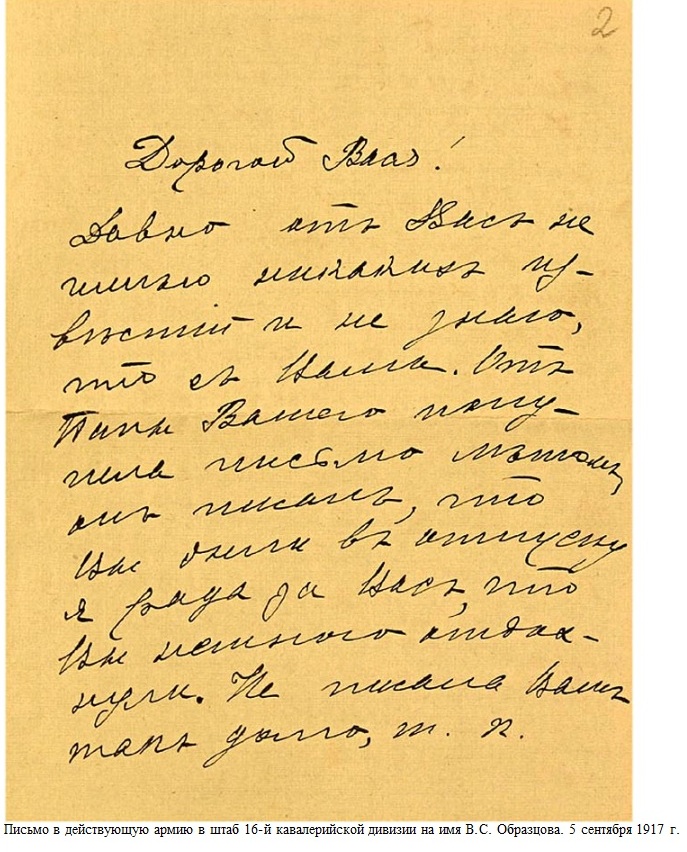 2
Дорогой Вася!
Давно отъ Васъ не
имѣю никакихъ из-
вѣстій и не знаю,
что съ Вами. Отъ
Папы Вашего полу-
чила письмо лѣтомъ,
онъ писалъ, что
Вы были въ отпуску
я рада за Васъ, что
Вы немного отдох-
нули. Не писала Вамъ
такъ долго, т. к.
Письмо в действующую армию в штаб 16-й кавалерийской дивизии на имя В.С. Образцова. 5 сентября 1917 г.